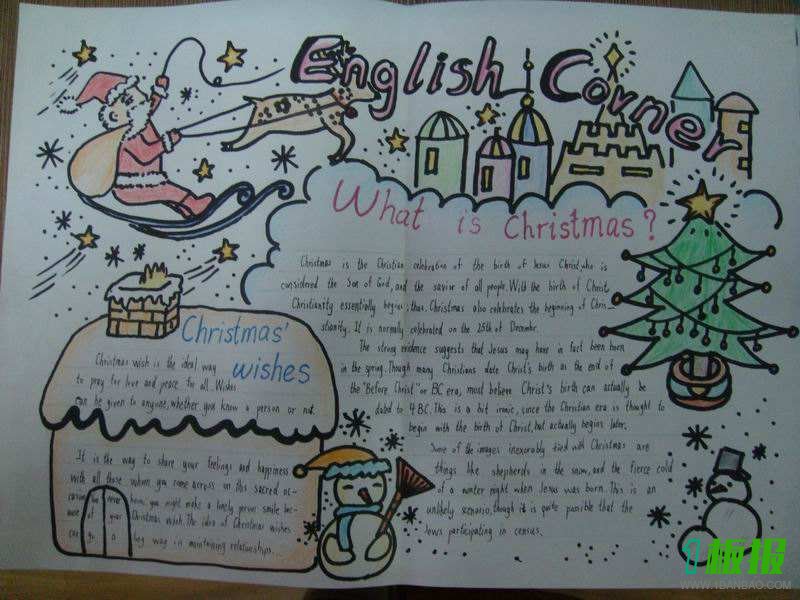 English Corner
What is Christmas?
Christmas is the Christian celebration of the birth of Jesus Christ, who is
considered the Son of God, and the savior of all people. With the birth of Christ
Christianity essentially begins, thus. Christmas also celebrates the beginning of Chris-
stianity. It is normally celebrated on the 25th of Decembr.
The strong evidence suggests that Jesus may have in fact been born
in the spring. Though many Christians date Christ's birth as the end of
the "Before Christ" or BC era, most believe Christ's birth can actually be
dated to 4 B.C. This is a bit ironic, since the Christian era is thought to
begin with the birth of Christ, but actually begins later.
Some of the images inexorably tied with Christmas are
things like shepherds in the snow, and the fierce cold
of a winter night when Jesus was born. This is an
unlikely scenario, though it is quite possible that the
Jews participating in census.
Christmas' wishes
Christmas wish is the ideal way
to pray for love and peace for all. Wishes
can be given to anyone, whether you know a person or not.
It is the way to share your feelings and happiness
with all those whom you come across on this sacred oc-
casion never know, you might make a lonely person smile bec-
ause of your Christmas wish. The idea of Christmas wishes
can go a long way in maintaining relationships.
1板报
WWW.1BANBAO.COM